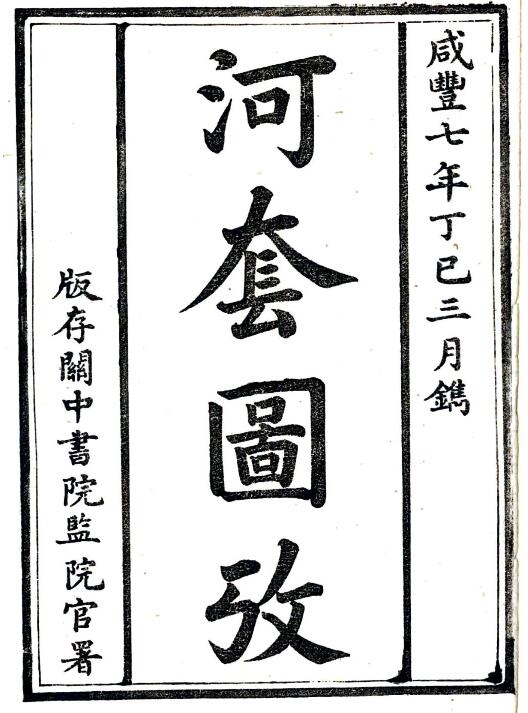 咸豐七年丁巳三月鐫
河套圖攷
版存關中書院監院官署